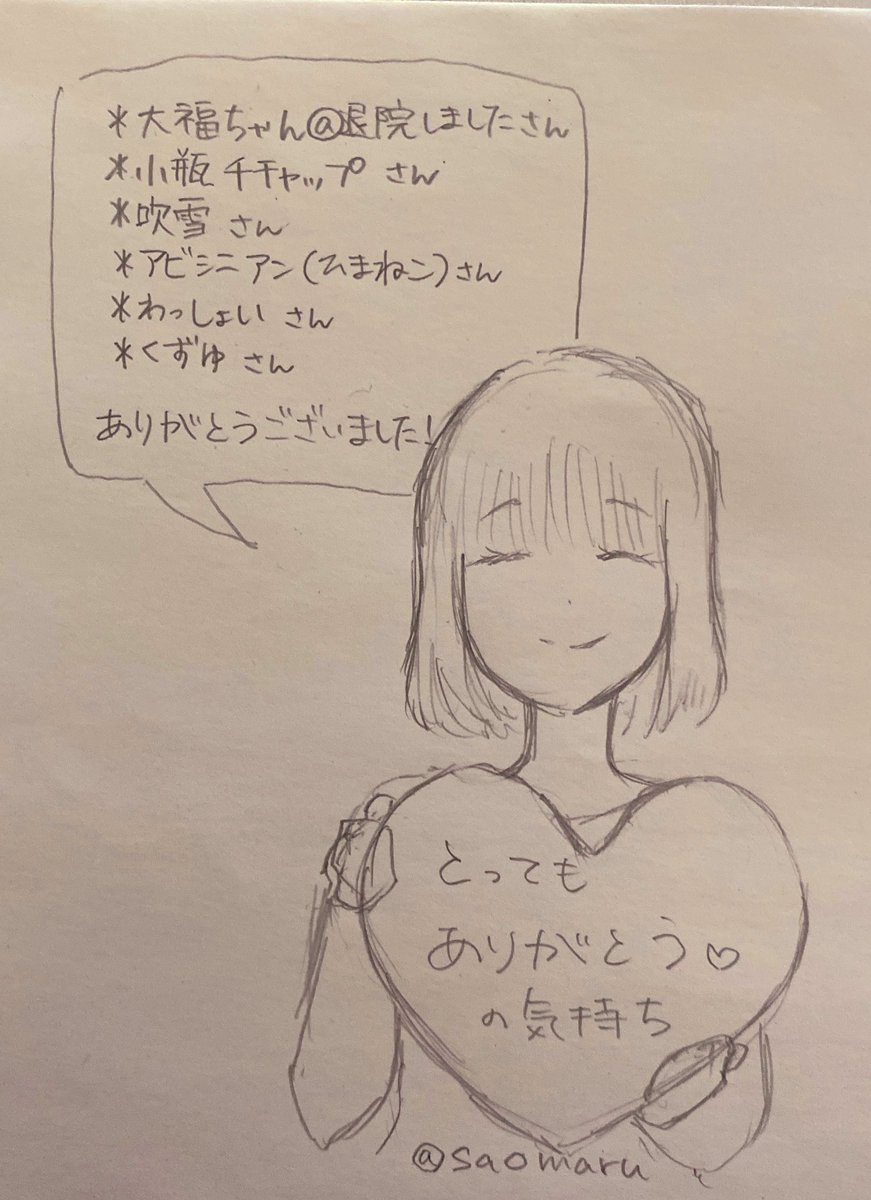 *大福ちゃん@退院しましたさん
*小瓶チチャップ さん
*吹雪 さん
*アビシニアン(ひまねこ)さん
*わっしょい さん
*くずゆ さん
ありがとうございました!
とっても
ありがとう♡
の気持ち
@saomaru